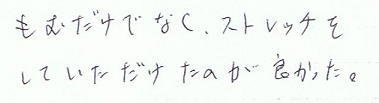 もむだけでなく、ストレッチを
していただけたのが良かった。